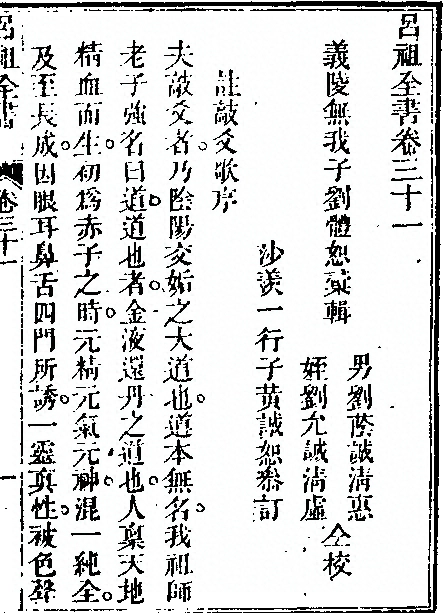 呂祖全書卷三十一
義陵無我子劉體恕彙輯
男劉蔭誠清惠
姪劉允誠清虛
仝校
沙羨一行子黃誠恕叅訂
註敲爻歌序
夫敲爻者乃陰陽交姤之大道也道本無名我祖師
老子強名曰道道也者金液還丹之道也人稟天地
精血而生初爲赤子之時元精元氣元神混一純全
及至長成因眼耳鼻舌四門所誘一靈真性被色聲
呂祖全書
卷三十一
一